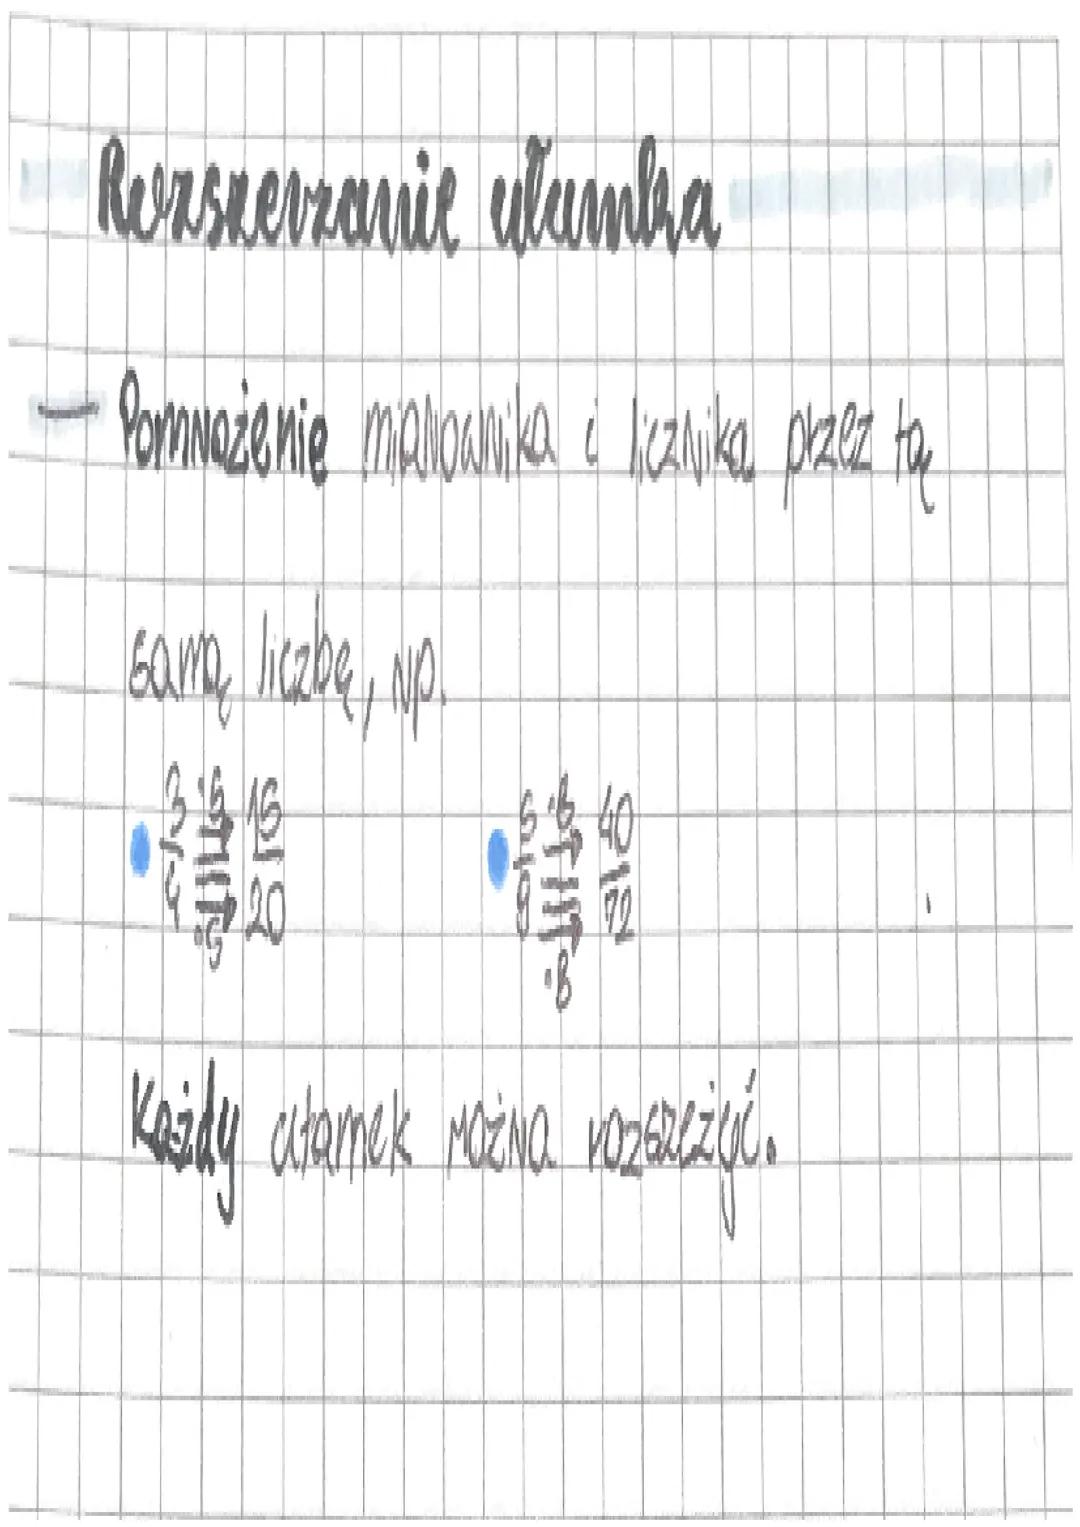 Rozszerzanie ułamka
— Pomnożenie mianownika i licznika przez tą
samą liczbę, np.
3/4 ·5 ·5 15/20
5/9 ·8 ·8 40/72
Każdy ułamek można rozszeżyć.